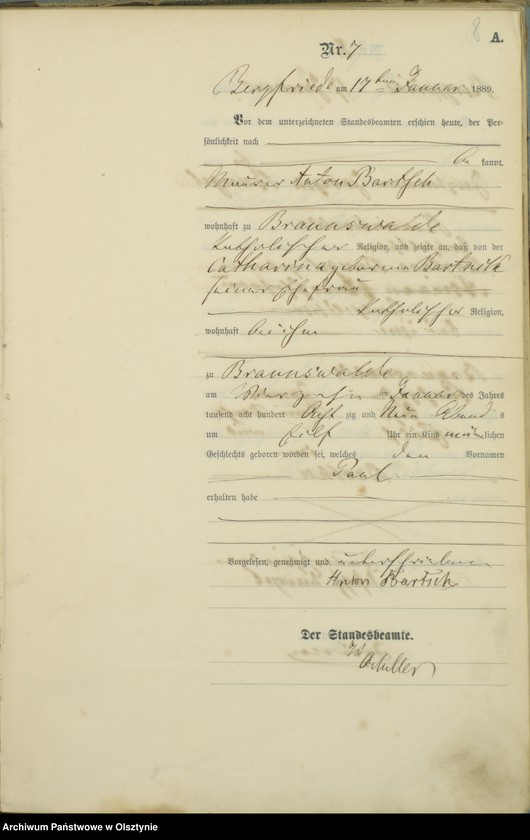 8
A.
Nr. 7
Bergfriede am 17ten Januar 1889.
Vor dem unterzeichneten Standesbeamten erschien heute, der Per-
sönlichkeit nach
be kannt,
Maurer Anton Bartsch
wohnhaft zu Braunswalde
katholischer Religion, und zeigte an, daß von der
Catharina geborene Bartnik
seiner Ehefrau
katholischer Religion,
wohnhaft bei ihm
zu Braunswalde
am vierzehn ten Januar des Jahres
tausend acht hundert Acht zig und Neun Abend s
um Eilf Uhr ein Kind männlichen
Geschlechts geboren worden sei, welches den Vornamen
Paul
erhalten habe
Vorgelesen, genehmigt und unterschrieben
Anton Bartsch
Der Standesbeamte.
Archiwum Państwowe w Olsztynie